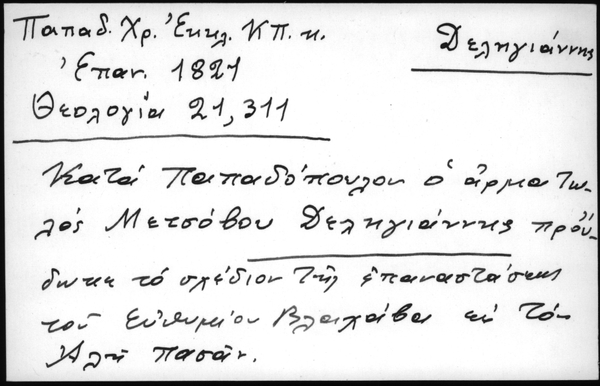 Παπαδ. Χρ. Ἐκκλ. ΚΠ. κ.
Δεληγιάννης
Ἐπαν. 1821
Θεολογία 21, 311
Κατά Παπαδόπουλον ὁ ἁρματω-
λός Μετσόβου Δεληγιάννης προὔ-
δωκε τό σχέδιον τῆς ἐπαναστάσεως
τοῦ Εὐθυμίου Βλαχάβα εἰς τόν
Ἀλῆ πασᾶν.